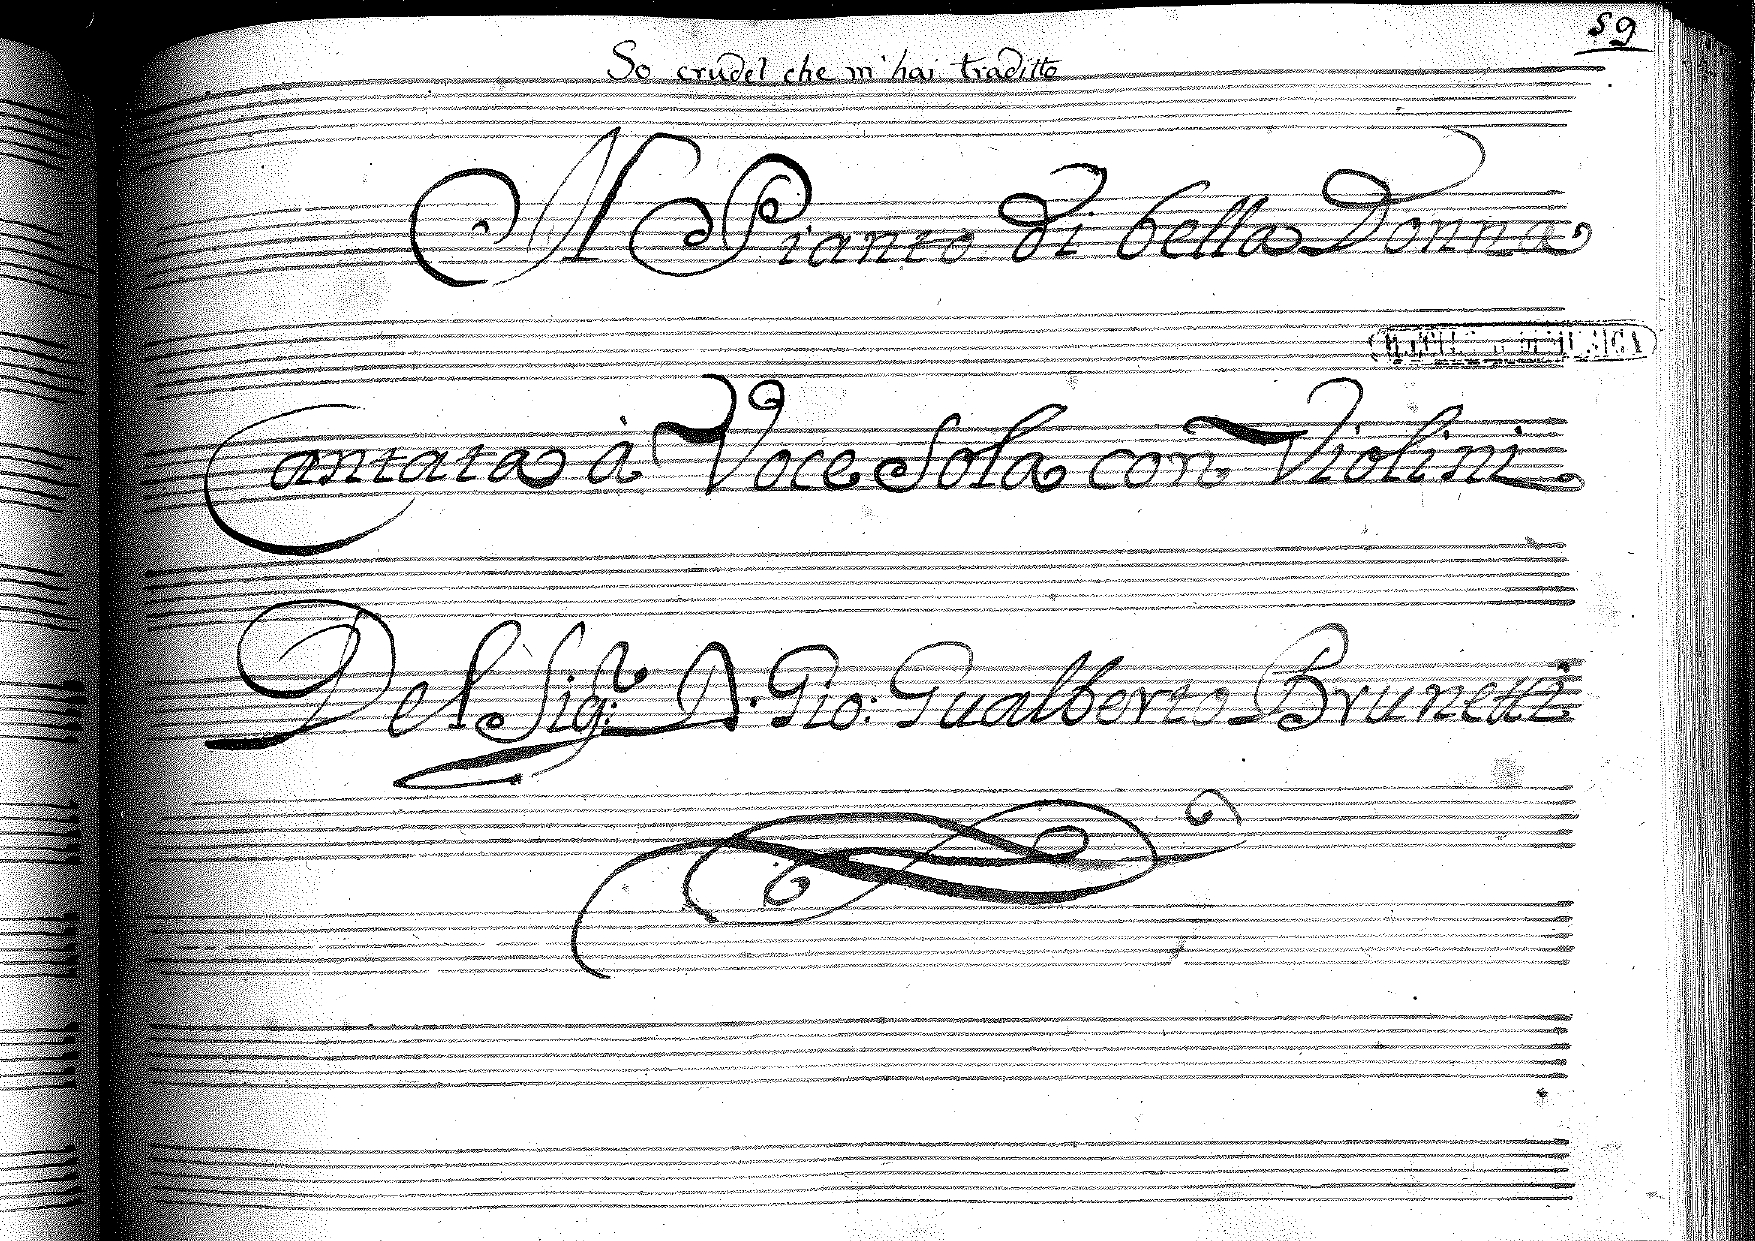 59
So crudel che m'hai traditto
Il Pianto di bella Donna
Cantata à Voce Sola con Violini
Del Sig.r D. Gio: Gualberto Brunetti